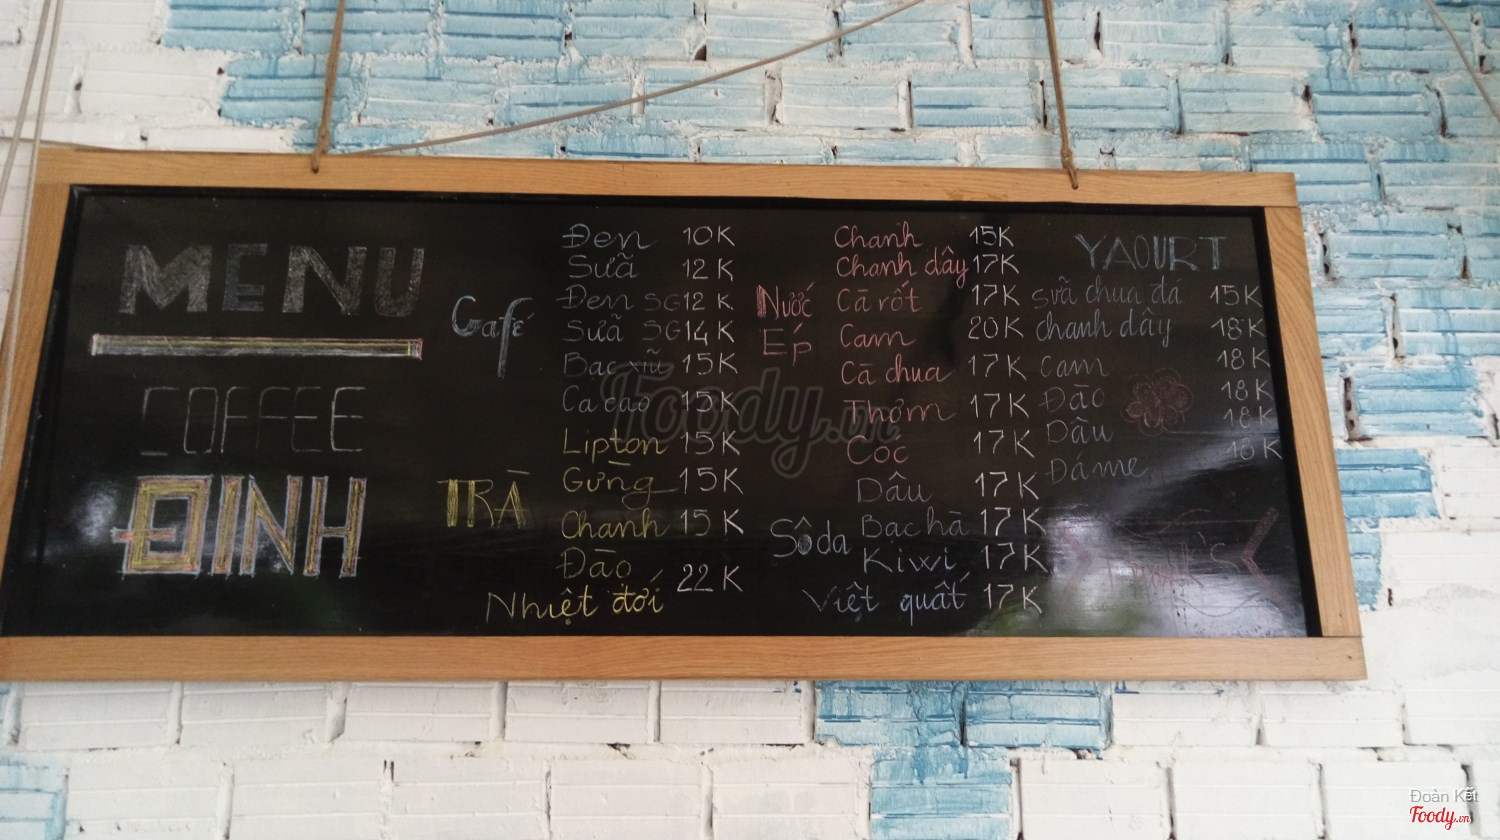 MENU
COFFEE
ĐINH
Café
Đen 10K
Sữa 12K
Đen SG 12K
Sữa SG 14K
Bạc xỉu 15K
Ca cao 15K
TRÀ
Lipton 15K
Gừng 15K
Chanh 15K
Đào
Nhiệt đới
22K
Nước
Ép
Chanh 15K
Chanh dây 17K
Cà rốt 17K
Cam 20K
Cà chua 17K
Thơm 17K
Cóc 17K
Sôda
Dâu 17K
Bạc hà 17K
Kiwi 17K
Việt quất 17K
YAOURT
Sữa chua đá 15K
Chanh dây 18K
Cam 18K
Đào 18K
Dâu 18K
Đá me 18K
Foody.vn
Đoàn Kết
Foody.vn